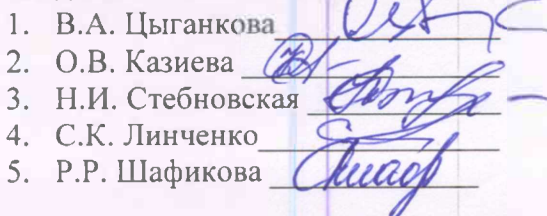 1. В.А. Цыганкова
2. О.В. Казиева
3. Н.И. Стебновская
4. С.К. Линченко
5. Р.Р. Шафикова